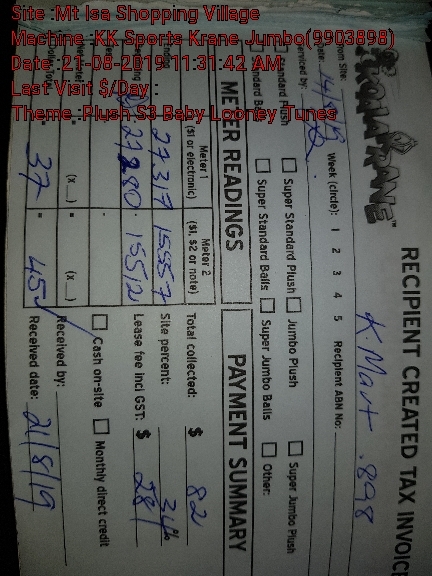 Site :Mt Isa Shopping Village
Machine :KK Sports Krane Jumbo(9903898)
Date :21-08-2019 11:31:42 AM
Last Visit $/Day :
Theme :Plush S3 Baby Looney Tunes
KOALA KRANE™
RECIPIENT CREATED TAX INVOIC
K.Mart .898
14/8/19
Week (circle): 1 2 3 4 5 Recipient ABN No:
Standard Plush Super Standard Plush Jumbo Plush Super Jumbo Plush
Super Standard Balls Super Jumbo Balls Other:
METER READINGS
PAYMENT SUMMARY
Meter 1
($1 or electronic)
Meter 2
($1, $2 or note)
27317 15557
27280 15512
(x __) (x __)
37 45
Total collected: $ 82
Site percent: 34%
Lease fee incl GST: $ 281
Cash on-site Monthly direct credit
Received by:
Received date: 21/8/19